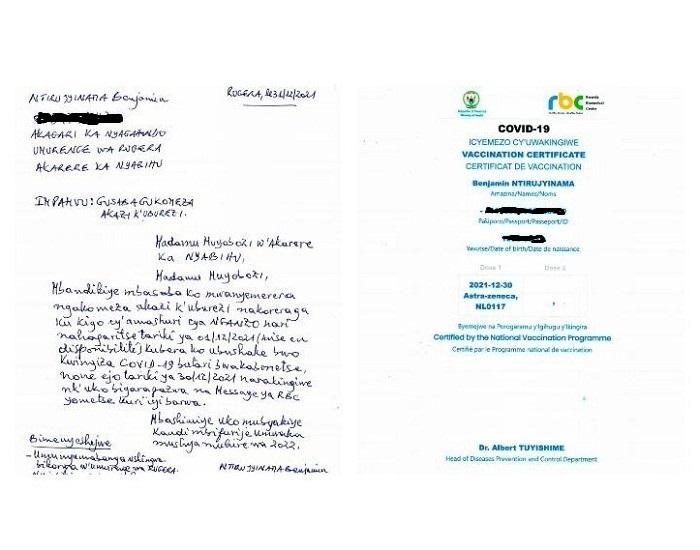 NTIRUJYINAMA Benjamin
RUGERA, le 31/12/2021
AKAGARI KA NYAGAHONDO
UMURENGE WA RUGERA
AKARERE KA NYABIHU
IMPAMVU: GUSABA GUKOMEZA
AKAZI K'UBUREZI.
Madamu Muyobozi w'Akarere
KA NYABIHU,
Madamu Muyobozi,
Mbandikiye mbasaba ko mwanyemerera
ngakomeza akazi k'uburezi nakoreraga
Ku kigo cy'amashuri cya NGANZO nari
nahagaritse tariki ya 01/12/2021 (mise en
disponibilité) kubera ko ubushake bwo
Kwingiza COVID-19 butari bwakabonetse,
none ejo tariki ya 30/12/2021 narakingiwe
nk'uko bigaragazwa na Message ya RBC
yometse kuri iyi barwa.
Mbashimiye uko mubyakiye
Kandi mbifurije umwaka
mushya muhire wa 2022.
Bimenyeshejwe
- Umunyamabanga Nshingwa
bikorwa w'umurenge wa RUGERA.
NTIRUJYINAMA Benjamin
Republic of Rwanda
Ministry of Health
rbc
Rwanda
Biomedical
Centre
COVID-19
ICYEMEZO CY'UWAKINGIWE
VACCINATION CERTIFICATE
CERTIFICAT DE VACCINATION
Benjamin NTIRUJYINAMA
Amazina/Names/Noms
Pasiporo/Passport/Passeport/ID
Yavutse/Date of birth/Date de naissance
Dose 1 Dose 2
2021-12-30
Astra-zeneca,
NL0117
Byemejwe na Porogaramu y'Igihugu y'Ikingira
Certified by the National Vaccination Programme
Certifié par le Programme national de vaccination
Dr. Albert TUYISHIME
Head of Diseases Prevention and Control Department